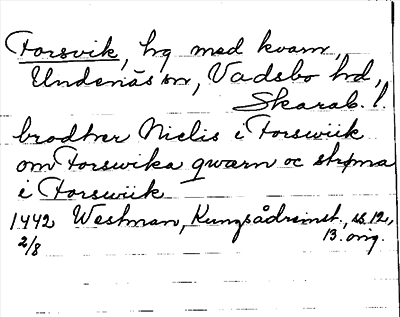 Forsvik, hg med kvarn,
Undenäs sn, Vadsbo hd,
Skarab. l.
brodher Nielis i Forswiik
om Forswika qwærn oc strøma
i Forswiik
1442 Westman, Kungsådreinst., s. 12,
2/8 13. orig.